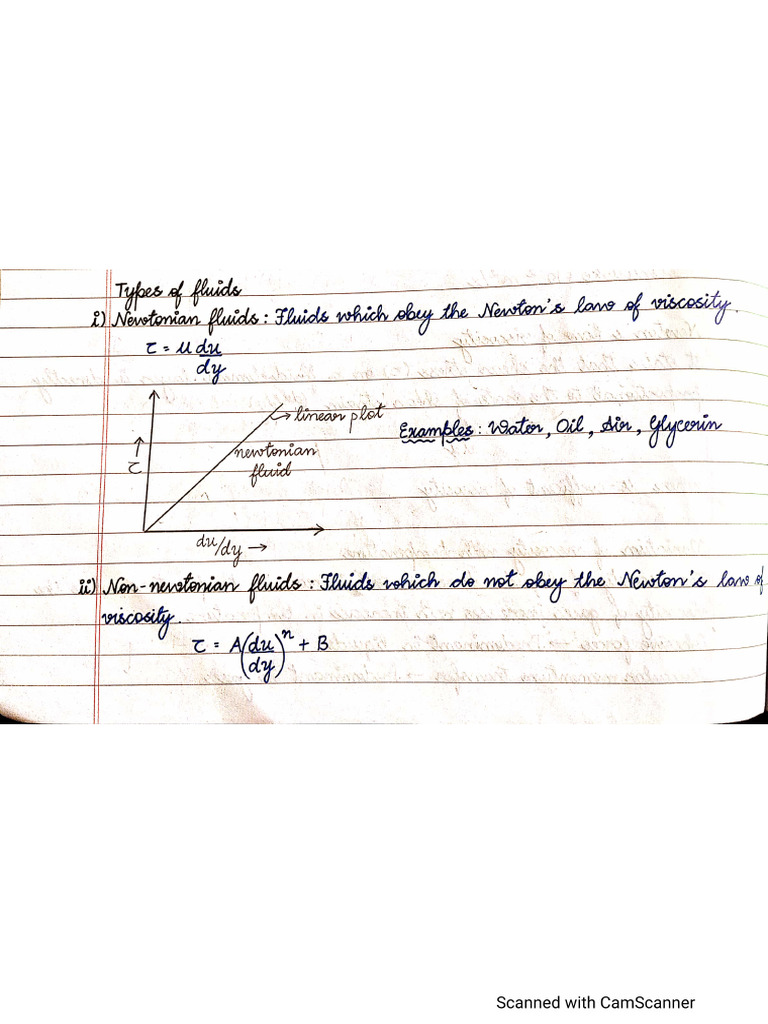 Types of fluids
i) Newtonian fluids: Fluids which obey the Newton's law of viscosity.
τ = μ du/dy
→ linear plot
Examples: Water, Oil, Air, Glycerin
newtonian
fluid
↑
τ
du/dy →
ii) Non-newtonian fluids: Fluids which do not obey the Newton's law of
viscosity.
τ = A(du/dy)ⁿ + B
Scanned with CamScanner